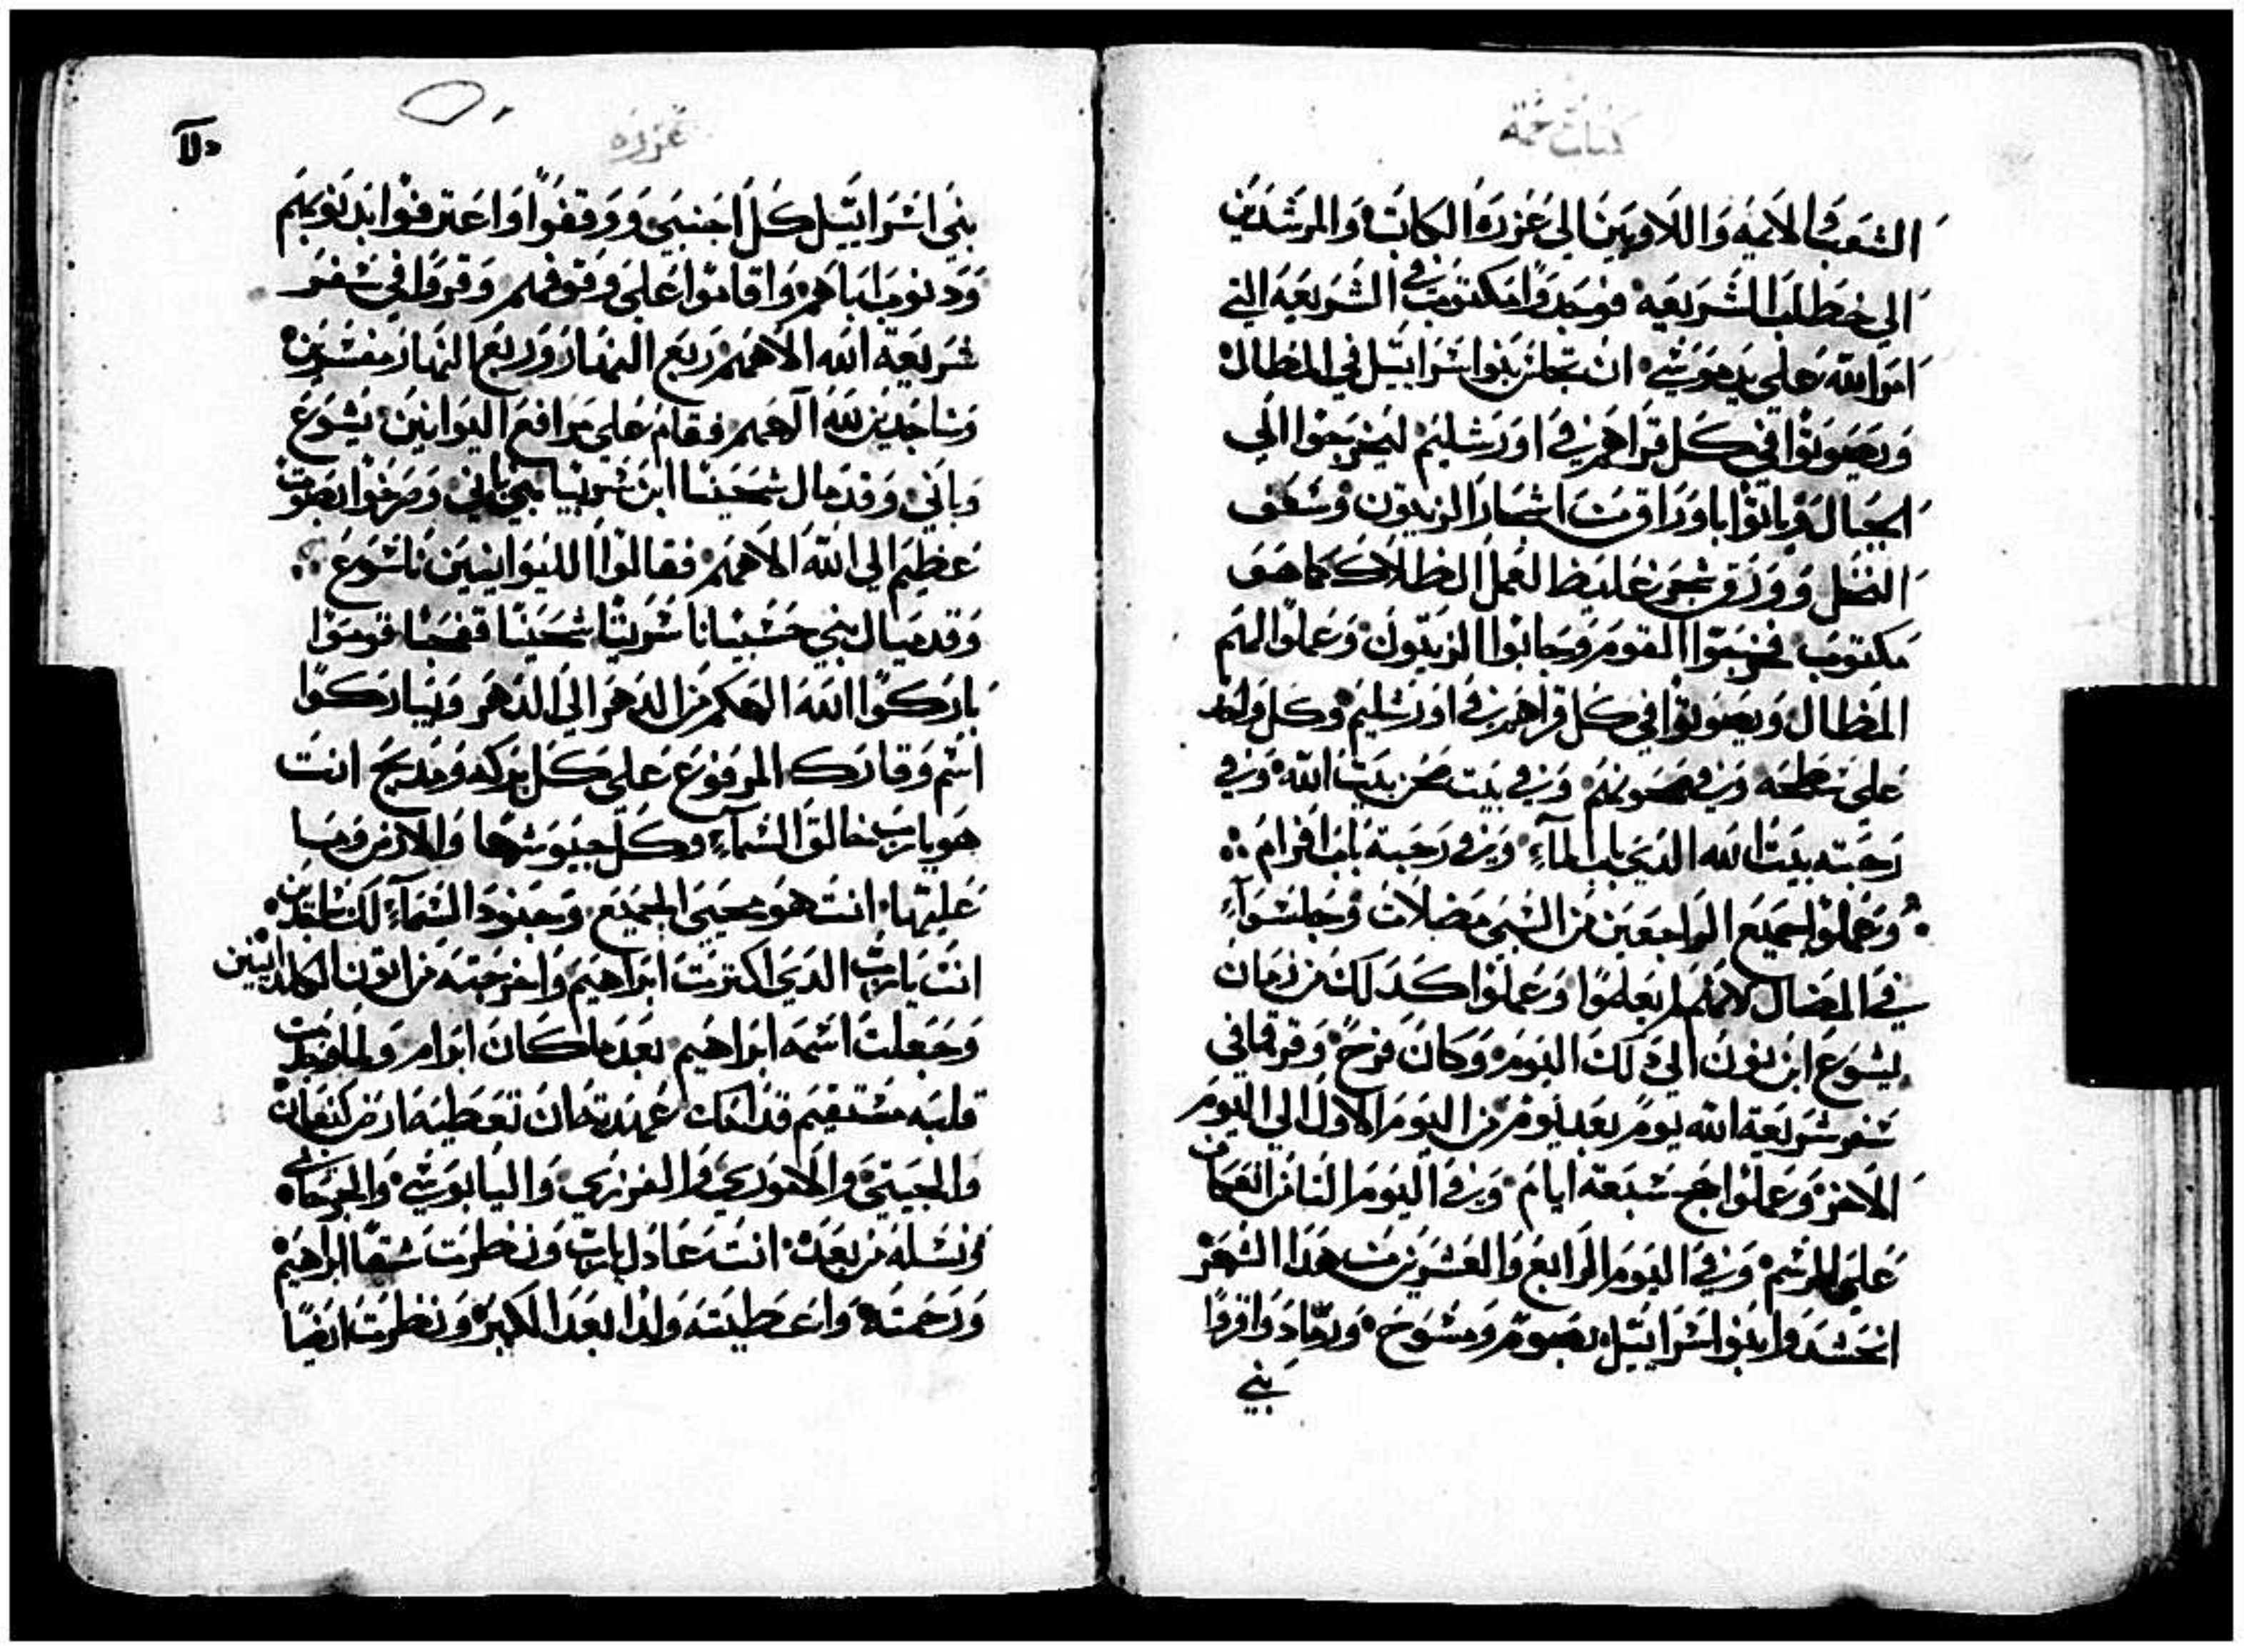 كتاب نحمة
الشعب والايمه واللاويين الي عزره الكاتب والمرشدين
الي خط طلب الشريعه فوجدوا مكتوب في الشريعه التي
امر الله علي يد موشي ان تجلس بنوا اشراييل في المظال
ويصوتوا في كل قراهم وفي اورشليم ليخرجوا الي
الجبال وياتوا باوراق من اشجار الزيتون وشعف
النخل وورق شجر غليظ لعمل المظلات كما هو
مكتوب فخرجوا القوم وجابوا الزيتون وعملوا لهم
المظال ويصوتوا في كل قراهم وفي اورشليم وكل واحد
علي شطحه وفي حصونهم وفي بيت صحن بيت الله وفي
رحبته بيت الله الدي باب الماء وفي رحبة باب افرام
وعملوا جميع الراجعين من الشبي مضلات وجلسوا
في المضال لانهم لم يعلموا وعملوا كدلك من زمان
يشوع ابن نون الي دلك اليوم وكان فرح وقرو في
شفر شريعة الله يوم بعد يوم من اليوم الاول الي اليوم
الاخر وعملوا حج شبعة ايام وفي اليوم التامن العكاف
علي الرشم وفي اليوم الرابع والعشرين من هدا الشهر
انحشدوا بنوا اشراييل بصوم ومشوح ورماد وافرقوا
بني
عزره
بني اشراييل كل اجنبي ووقفوا واعترفوا بدنوبهم
ودنوب اباهم واقاموا علي وقوفهم وقروا في شفر
شريعة الله الاههم ربع النهار وربع النهار منتشرين
وشاجدين لله الاههم فقام علي مرافع اليوانيين يشوع
وباني وقدمال شمحينا ابن شربيا بني باني وصرخوا بصوت
عظيم الي الله الاههم فقالوا الليوانيين ناشوع
وقدميال بني حشبيانا شربيا شحينا قفحيا قوموا
باركوا الله الهكم من الدهر الي الدهر ويباركوا
اشم وقارك المرفوع علي كل بركه ومديح انت
هو يارب خالق الشماء وكل جيوشها والارض وما
عليها انت هو محيي الجميع وجنود الشماء لك شاجدين
انت يارب الدي اكترت ابراهيم واخرجته من اتون الكلدانيين
وجعلت اشمه ابراهيم بعد ما كان ابرام ولما وجدت
قلبه مشتقيم قدامك عهدته ان تعطيه ارض كنعان
والحيتي والاموري والفرزي واليابوشي والجرجاشي
ونشله من بعده انت عادل يارب ونظرت شقا ابراهيم
ورحمته واعطيته ولدا بعد الكبر ونظرت ايضا